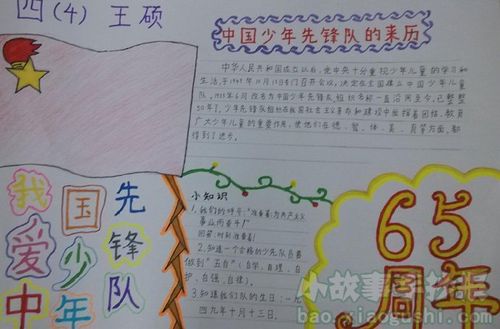 四(4) 王硕
中国少年先锋队的来历
中华人民共和国成立以后,党中央十分重视少年儿童的学习和
生活,于1949年10月13日专门召开会议,决定在全国建立中国少年儿童
队。1953年6月改名为中国少年先锋队,组织名称一直沿用至今,已整整
50年了。少年先锋队组织在我国社会主义革命和建设中起着团结、教育
广大少年儿童的重要作用,使他们在德、智、体、美、劳等方面,都
得到了进步。
小知识
1、我们的呼号:“准备着,为共产主义
事业而奋斗!”
回答:时刻准备着!
2、知道一个合格的少先队员要
做到“五自”(自学、自理、自
护、自强、自律)。
3、知道我们队的生日:一九
四九年十月十三日。
我爱中
国少年
先锋队
65
周年
小故事手抄报
bao.xiaogushi.com